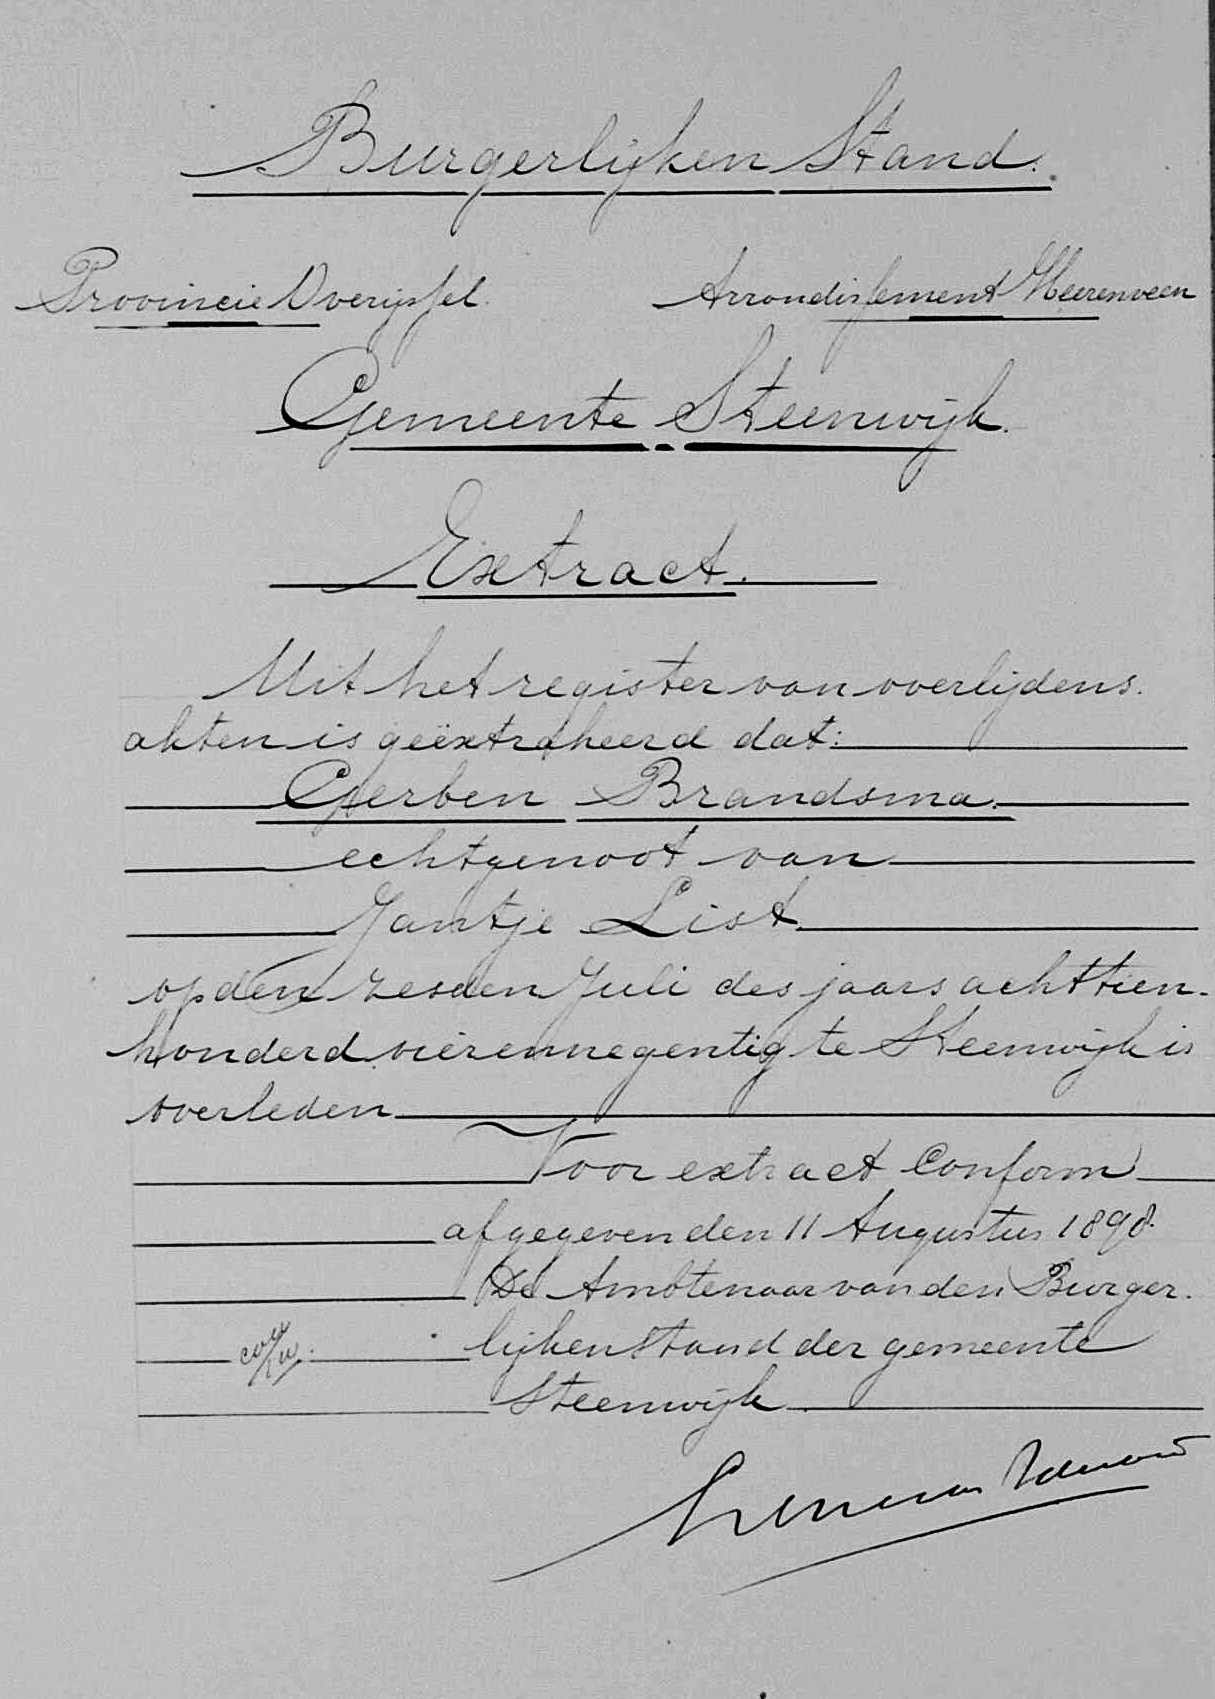 Burgerlijken Stand.
Provincie Overijssel. Arrondissement Heerenveen
Gemeente Steenwijk.
Extract.
Uit het register van overlijdens.
akten is geëxtraheerd dat:
Gerben Brandsma.
echtgenoot van
Jantje List
op den zesden Juli des jaars achttien-
honderd vierennegentig te Steenwijk is
overleden
Voor extract Conform
afgegeven den 11 Augustus 1898.
De Ambtenaar van den Burger.
lijken stand der gemeente
Steenwijk